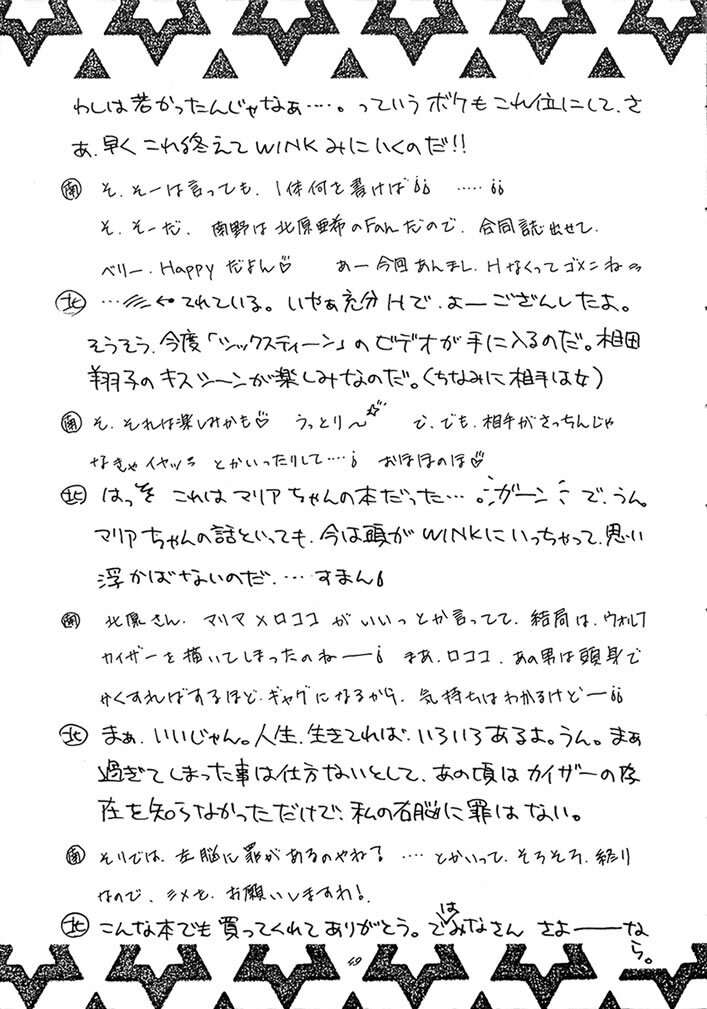 わしは若かったんじゃなぁ….。っていうボケもこれ位にして、さ
ぁ、早くこれ終えてWINKみにいくのだ!!
南 そ、そーは言っても、1体何を書けば¡¡ ……¡¡
そ、そーだ、南野は北原亜希のFanだので、合同誌出せて、
ベリー、Happyだよん♡ あー今回あんまし、Hなくってゴメンね
北 …←てれている。いやぁ充分Hで、よーござんしたよ。
そうそう、今度「シックスティーン」のビデオが手に入るのだ。相田
翔子のキスシーンが楽しみなのだ。(ちなみに相手は女)
南 そ、それは楽しみかも♡ うっとり〜☆ で、でも、相手がさっちんじゃ
なきゃイヤッ とかいったりして…¡ おほほのほ♡
北 はっ これはマリアちゃんの本だった…。ガーン で、うん。
マリアちゃんの話といっても、今は頭がWINKにいっちゃって、思い
浮かばないのだ、…すまん
南 北原さん、マリア×ロココがいいっとか言ってて、結局は、ウォルフ
カイザーを描いてしまったのねー¡ まあ、ロココ、あの男は頭身で
かくすればするほど、ギャグになるから、気持ちはわかるけどー¡¡
北 まぁ、いいじゃん。人生、生きてれば、いろいろあるよ。うん。まぁ
過ぎてしまった事は仕方ないとして、あの頃はカイザーの存
在を知らなかっただけで、私の右脳に罪はない。
南 そりでは、左脳に罪があるのやね? ….とかいって、そろそろ、終り
なので、シメを、お願いしますわ!
北 こんな本でも買ってくれてありがとう。ではみなさん さよ──な
ら。
49